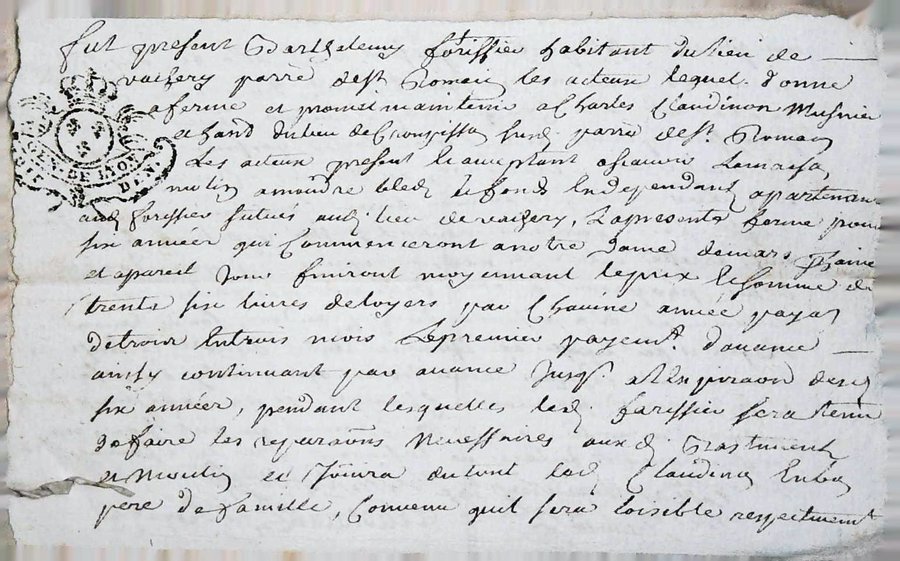 fut present Barthelemy forissier habitant du lieu de
vaizery parre de st. Romain les atteux lequel donne
a ferme et promet maintenir a Charles Claudinon Musnier
et hand du lieu de Croupisson susd. parre de st. Romain
GEN. DE LYON
Les atteux present & acceptant a scavoir
moulin a moudre bled, & fonds en dependant appartenant
aud. forissier situés aud. lieu de vaizery, La presente ferme pour
six années qui Commenceront a notre dame de mars
et a pareil Jour finiront moyennant le prix & somme de
trente six livres de loyers par Chacune année payable
de trois en trois mois Le premier payemt. d'avance
ainsy continuant par avance Jusq. a l'expiraon desd.
six années, pendant lesquelles led. forissier sera tenu
de faire les reparaons necessaires auxd. Bastiments
et moulin et Jouira du tout led. Claudinon En bon
pere de famille, Convenu quil sera loisible respectivement